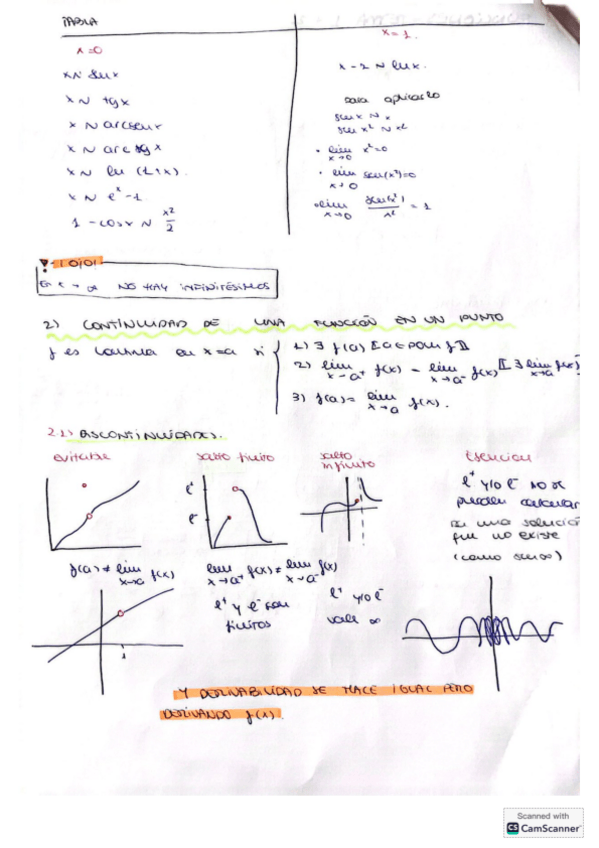 TABLA
x=0
x ~ senx
x ~ tgx
x ~ arcsenx
x ~ arctgx
x ~ ln (1+x)
x ~ e^x -1
1 - cosx ~ x²/2
x=1
x - 1 ~ lnx
para aplicarlo
senx ~ x
senx² ~ x²
• lim x→0 x²=0
• lim x→0 sen(x²)=0
• lim x→0 sen(x²)/x² = 1
¡OJO!
En x → ∞ NO HAY INFINITÉSIMOS
2) CONTINUIDAD DE UNA FUNCIÓN EN UN PUNTO
f es continua en x=a si
1) ∃ f(a) [a ∈ Dom f]
2) lim x→a⁺ f(x) = lim x→a⁻ f(x) [∃ lim x→a f(x)]
3) f(a) = lim x→a f(x).
2.1) DISCONTINUIDADES.
evitable
salto finito
salto infinito
Esencial
l⁺
l⁻
l⁺ y/o l⁻ no se
pueden calcular
una solución
que no existe
(como sen∞)
f(a) ≠ lim x→a f(x)
lim x→a⁺ f(x) ≠ lim x→a⁻ f(x)
l⁺ y l⁻ son
finitos
l⁺ y/o l⁻
vale ∞
1
Y DERIVABILIDAD SE HACE IGUAL PERO
DERIVANDO f(x).
Scanned with
CS CamScanner